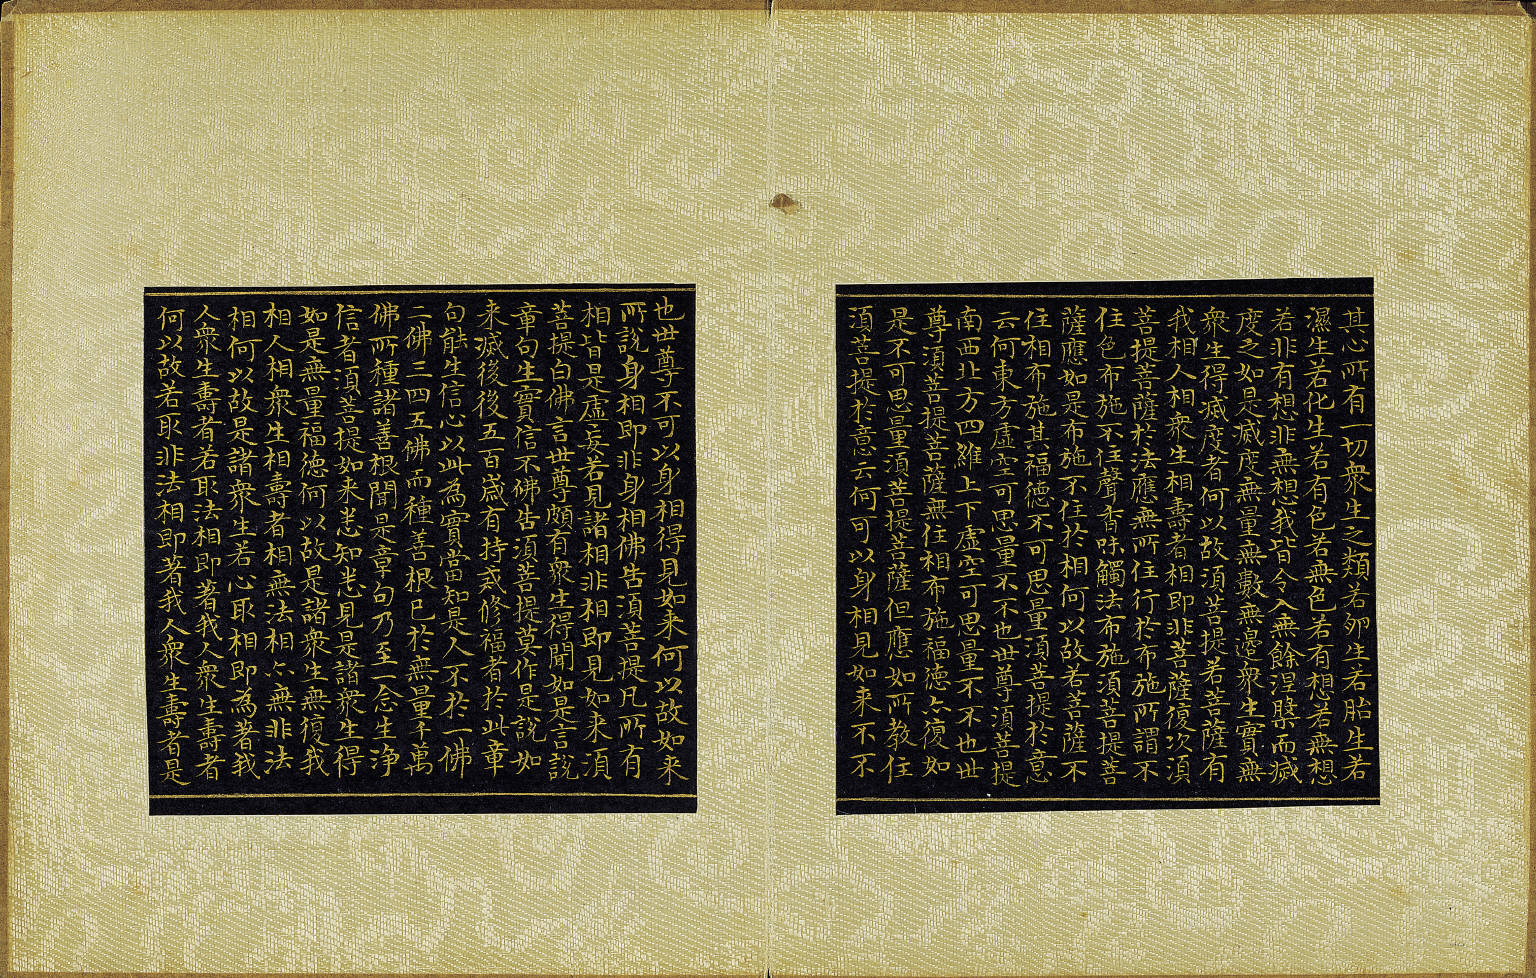 其心所有一切衆生之類若卵生若胎生若
濕生若化生若有色若無色若有想若無想
若非有想非無想我皆令入無餘涅槃而滅
度之如是滅度無量無數無邊衆生實無
衆生得滅度者何以故須菩提若菩薩有
我相人相衆生相壽者相即非菩薩復次須
菩提菩薩於法應無所住行於布施所謂不
住色布施不住聲香味觸法布施須菩提菩
薩應如是布施不住於相何以故若菩薩不
住相布施其福德不可思量須菩提於意
云何東方虛空可思量不不也世尊須菩提
南西北方四維上下虛空可思量不不也世
尊須菩提菩薩無住相布施福德亦復如
是不可思量須菩提菩薩但應如所教住
須菩提於意云何可以身相見如来不不
也世尊不可以身相得見如来何以故如来
所說身相即非身相佛告須菩提凡所有
相皆是虛妄若見諸相非相即見如来須
菩提白佛言世尊頗有衆生得聞如是言說
章句生實信不佛告須菩提莫作是說如
来滅後後五百歲有持戒修福者於此章
句能生信心以此為實當知是人不於一佛
二佛三四五佛而種善根已於無量千萬
佛所種諸善根聞是章句乃至一念生淨
信者須菩提如来悉知悉見是諸衆生得
如是無量福德何以故是諸衆生無復我
相人相衆生相壽者相無法相亦無非法
相何以故是諸衆生若心取相即為著我
人衆生壽者若取法相即著我人衆生壽者
何以故若取非法相即著我人衆生壽者是